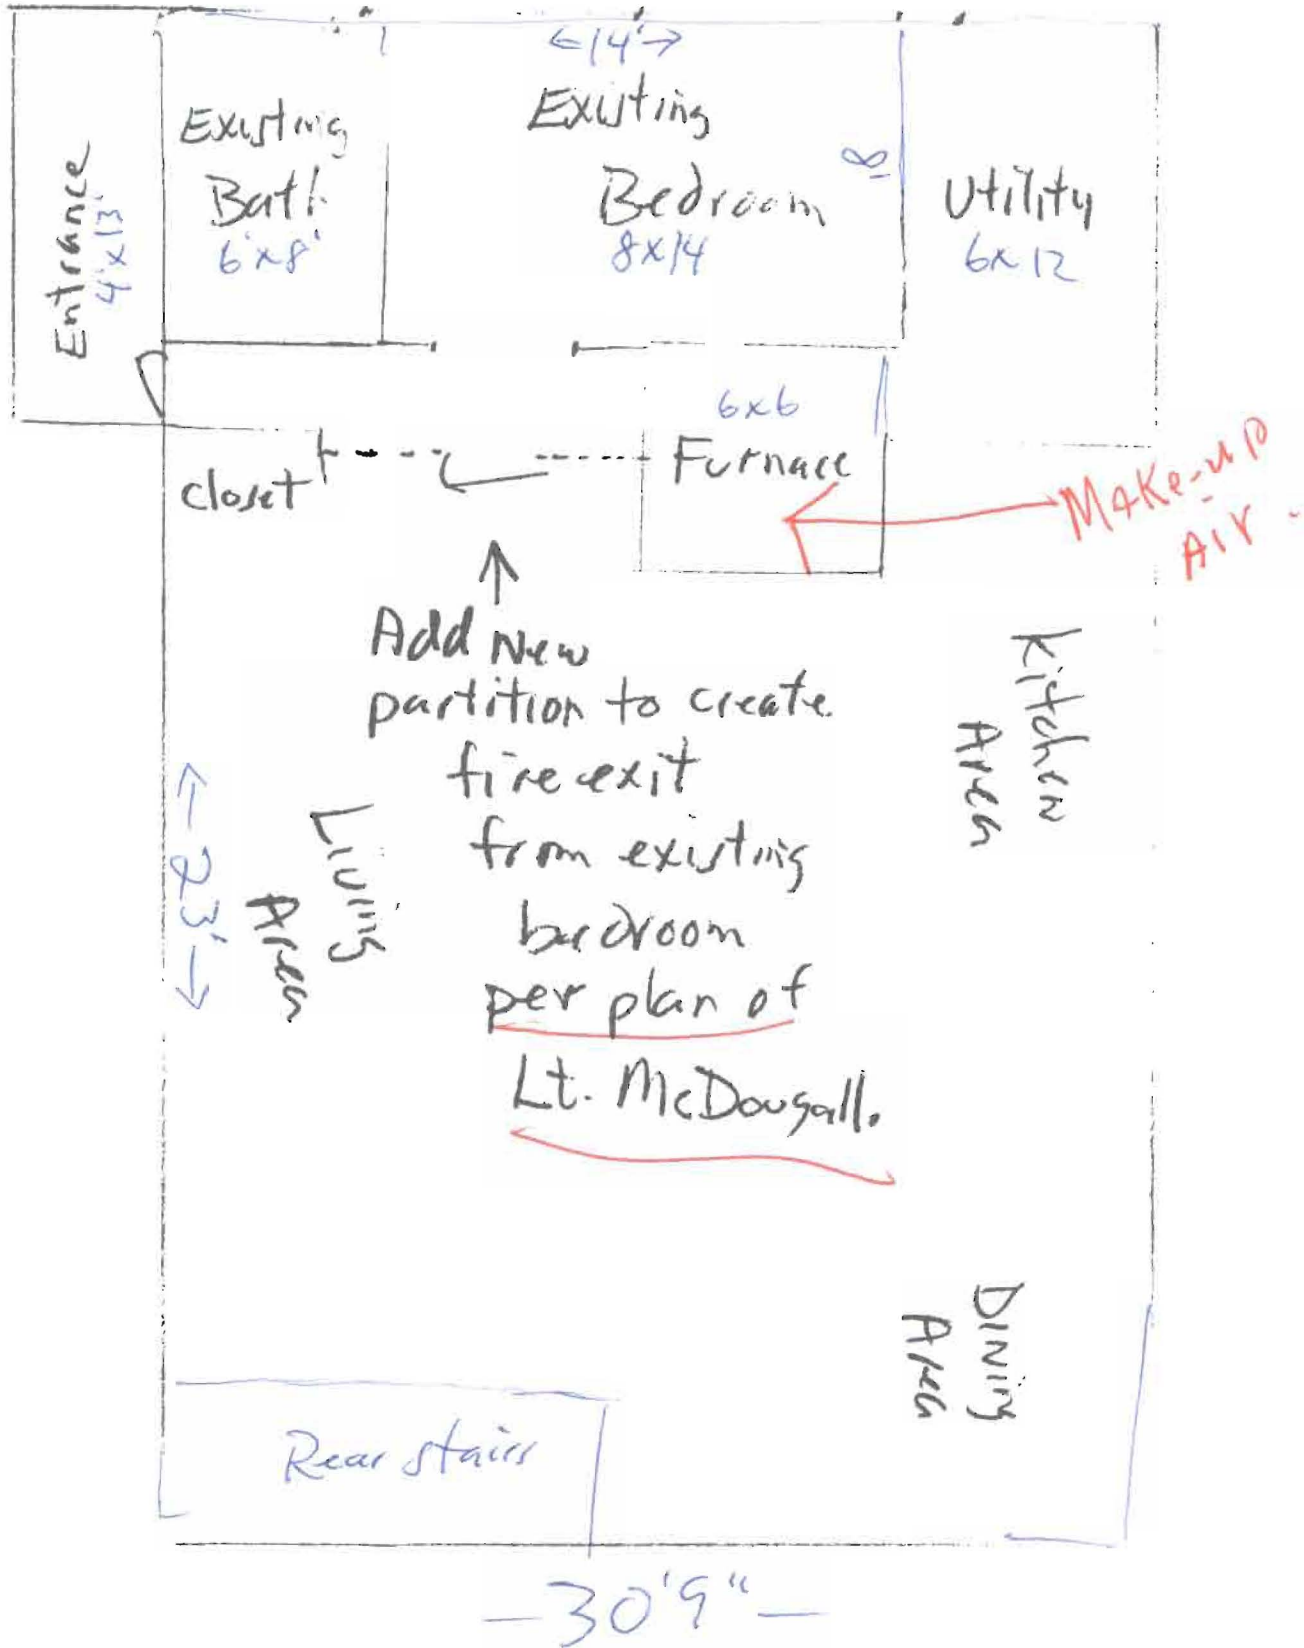 ←14'→
Existing
Bath
6'x8'
Existing
Bedroom
8x14
8'
Utility
6x12
Entrance
4'x13'
6x6
Furnace
closet
Make-up
Air
Add New
partition to create
fire exit
from existing
bedroom
per plan of
Lt. McDougall.
Kitchen
Area
Living
Area
←23'→
Dining
Area
Rear stairs
-30'9"-